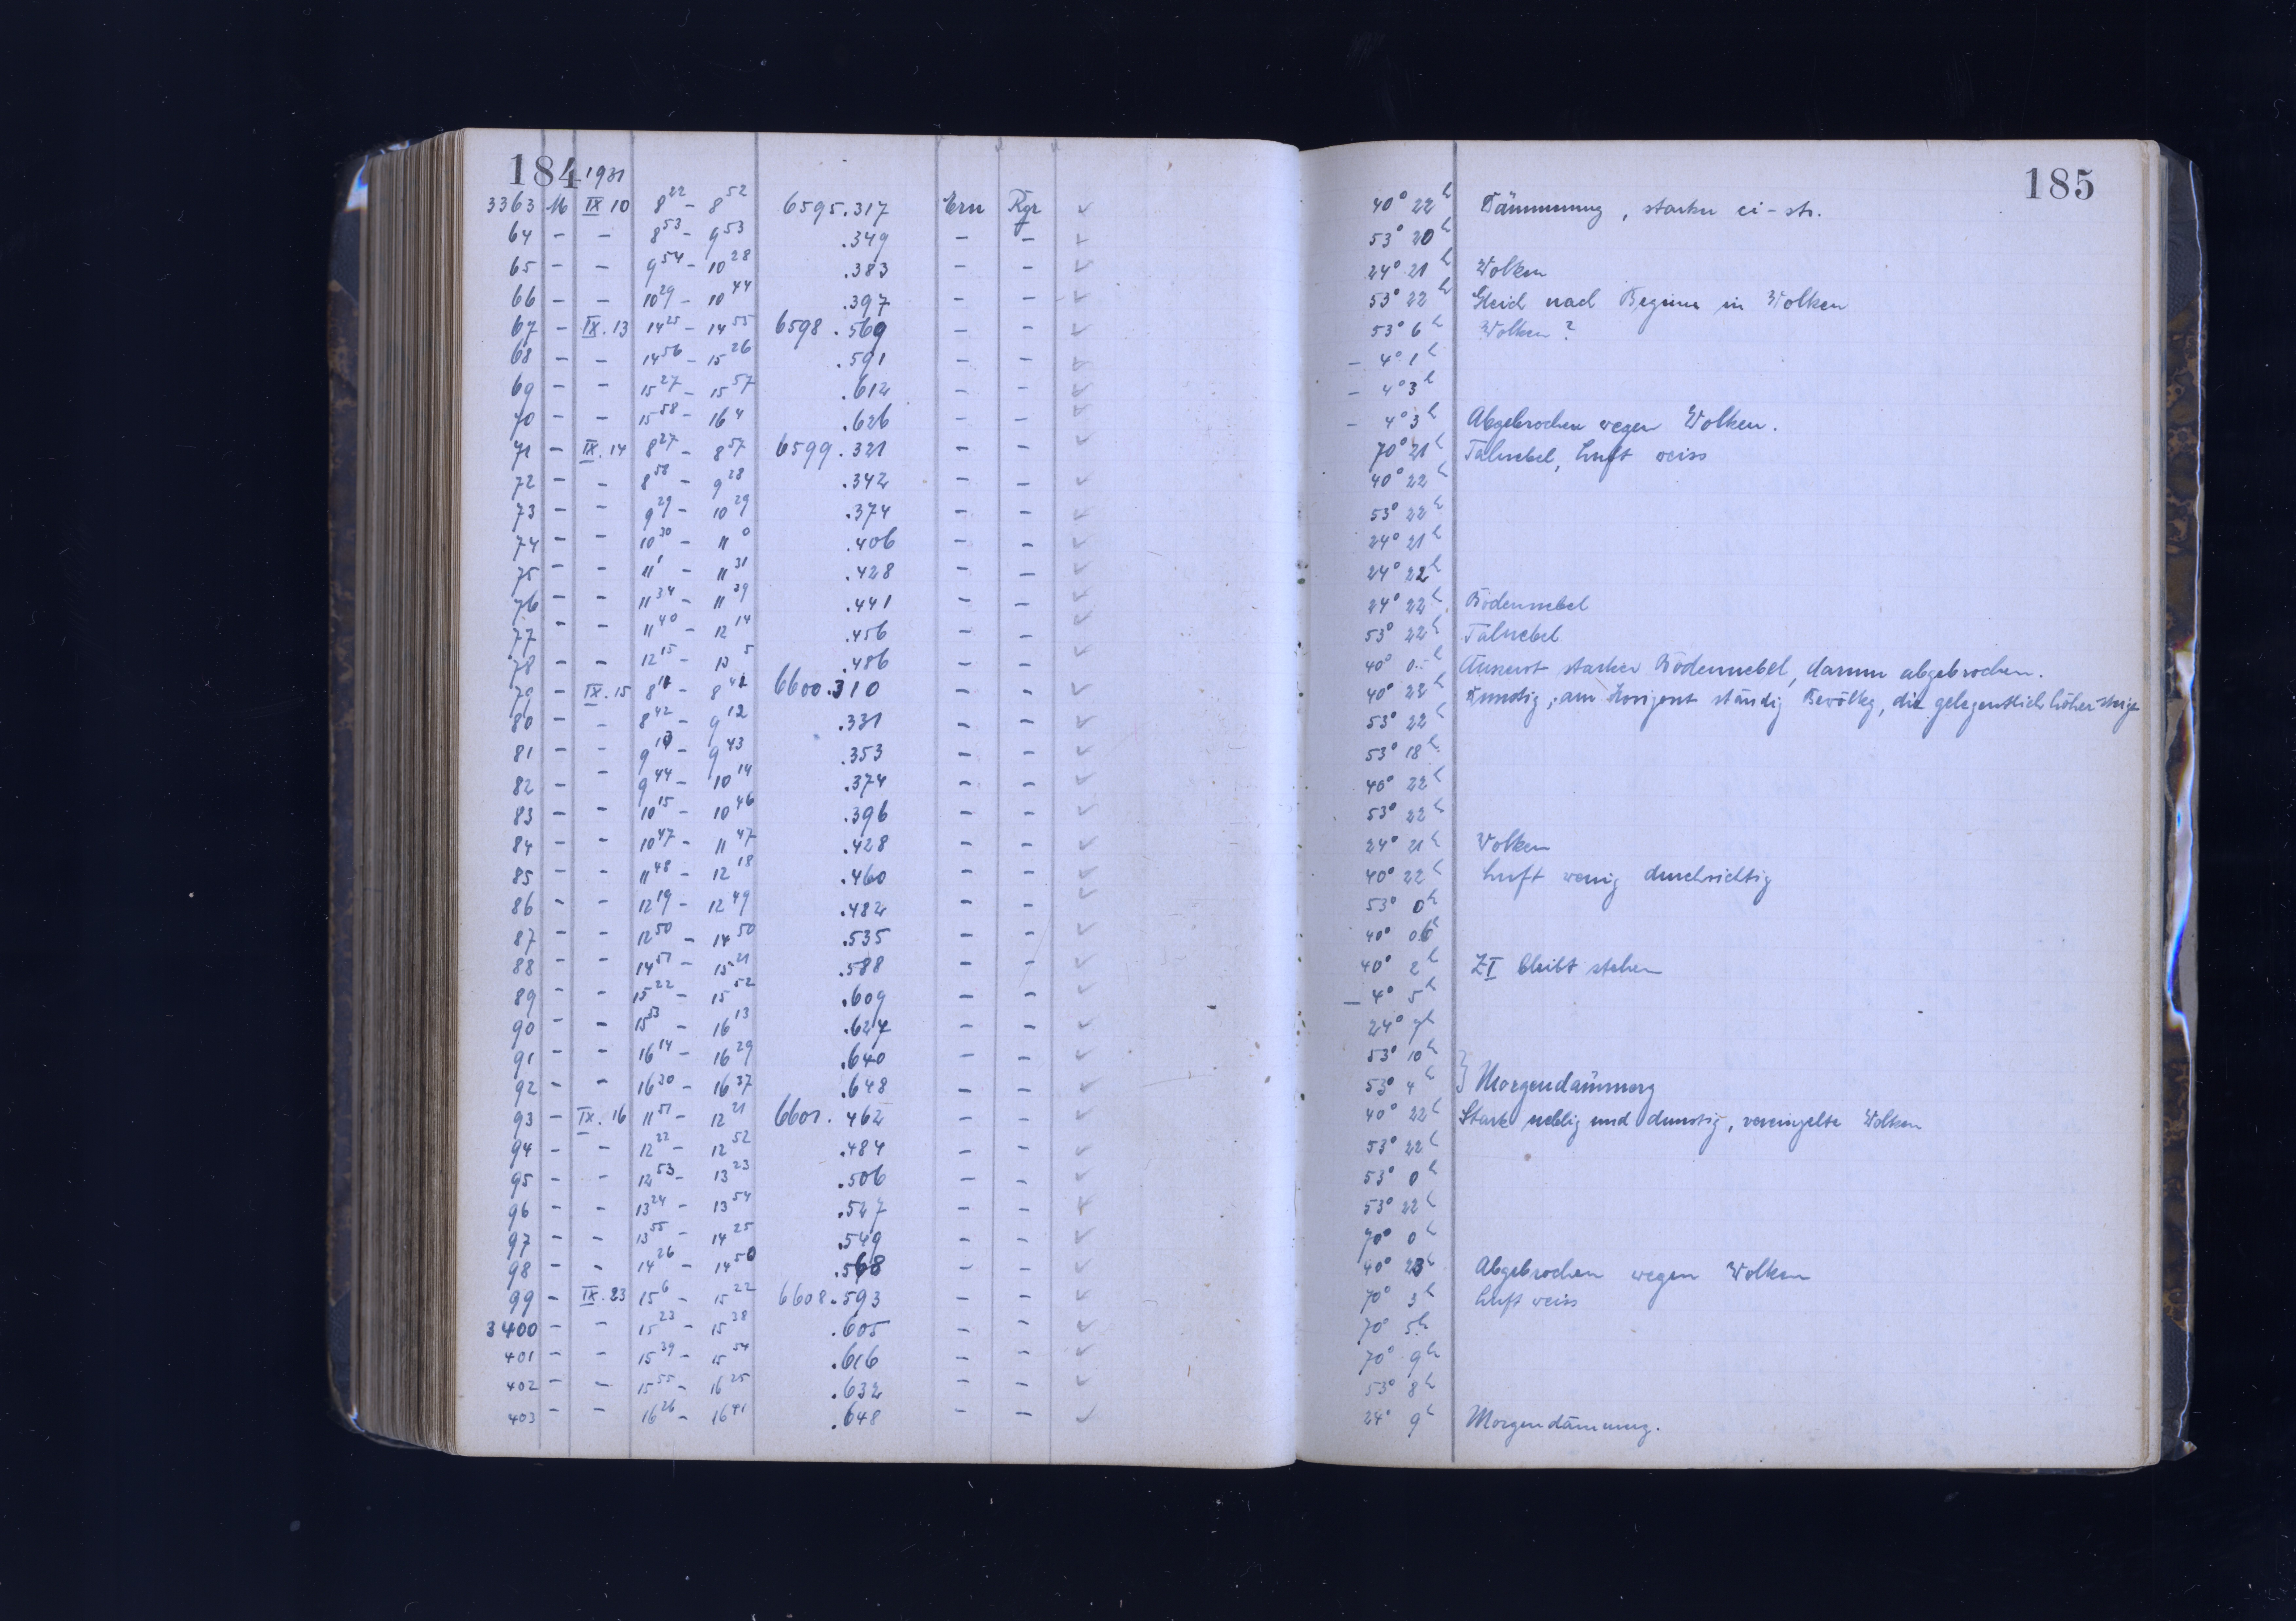 184 1931
185
3363 M IX 10 8 22 – 8 52 6595.317 Ern Rgr 40° 22h Dämmerung, starke ci-str.
64 – – 8 53 – 9 53 .349 – – 53° 20h
65 – – 9 54 – 10 28 .383 – – 24° 21h Wolken
66 – – 10 29 – 10 44 .397 – – 53° 22h Gleich nach Beginn in Wolken
67 – IX. 13 14 25 – 14 55 6598.569 – – 53° 6h Wolken?
68 – – 14 56 – 15 26 .591 – – – 4° 1h
69 – – 15 27 – 15 57 .612 – – – 4° 3h
70 – – 15 58 – 16 4 .626 – – – 4° 3h Abgebrochen wegen Wolken.
71 – IX. 14 8 27 – 8 57 6599.321 – – 70° 21h Talnebel, Luft weiss
72 – – 8 58 – 9 28 .342 – – 40° 22h
73 – – 9 29 – 10 29 .374 – – 53° 22h
74 – – 10 30 – 11 0 .406 – – 24° 21h
75 – – 11 1 – 11 31 .428 – – 24° 22h
76 – – 11 34 – 11 39 .441 – – 24° 22h Bodennebel
77 – – 11 40 – 12 14 .456 – – 53° 22h Talnebel
78 – – 12 15 – 13 5 .486 – – 40° 0h Äusserst starker Bodennebel, darum abgebrochen.
79 – IX. 15 8 11 – 8 41 6600.310 – – 40° 22h Dunstig, am Horizont ständig Bevölkg, die gelegentlich höher steigt
80 – – 8 42 – 9 12 .331 – – 53° 22h
81 – – 9 13 – 9 43 .353 – – 53° 18h
82 – – 9 44 – 10 14 .374 – – 40° 22h
83 – – 10 15 – 10 46 .396 – – 53° 22h
84 – – 10 47 – 11 47 .428 – – 24° 21h Wolken
85 – – 11 48 – 12 18 .460 – – 40° 22h Luft wenig durchsichtig
86 – – 12 19 – 12 49 .482 – – 53° 0h
87 – – 12 50 – 14 50 .535 – – 40° 0h
88 – – 14 51 – 15 21 .588 – – 40° 2h ZI bleibt stehen
89 – – 15 22 – 15 52 .609 – – – 4° 5h
90 – – 15 53 – 16 13 .627 – – 24° 7h
91 – – 16 14 – 16 29 .640 – – 53° 10h
92 – – 16 30 – 16 37 .648 – – 53° 4h } Morgendämmerg
93 – IX. 16 11 51 – 12 21 6601.462 – – 40° 22h Stark neblig und dunstig, vereinzelte Wolken
94 – – 12 22 – 12 52 .484 – – 53° 22h
95 – – 12 53 – 13 23 .506 – – 53° 0h
96 – – 13 24 – 13 54 .527 – – 53° 22h
97 – – 13 55 – 14 25 .549 – – 70° 0h
98 – – 14 26 – 14 50 .568 – – 40° 23h Abgebrochen wegen Wolken
99 – IX. 23 15 6 – 15 22 6608.593 – – 70° 3h Luft weiss
3400 – – 15 23 – 15 38 .605 – – 70° 5h
401 – – 15 39 – 15 54 .616 – – 70° 9h
402 – – 15 55 – 16 25 .632 – – 53° 8h
403 – – 16 26 – 16 41 .648 – – 24° 9h Morgendämmerung.